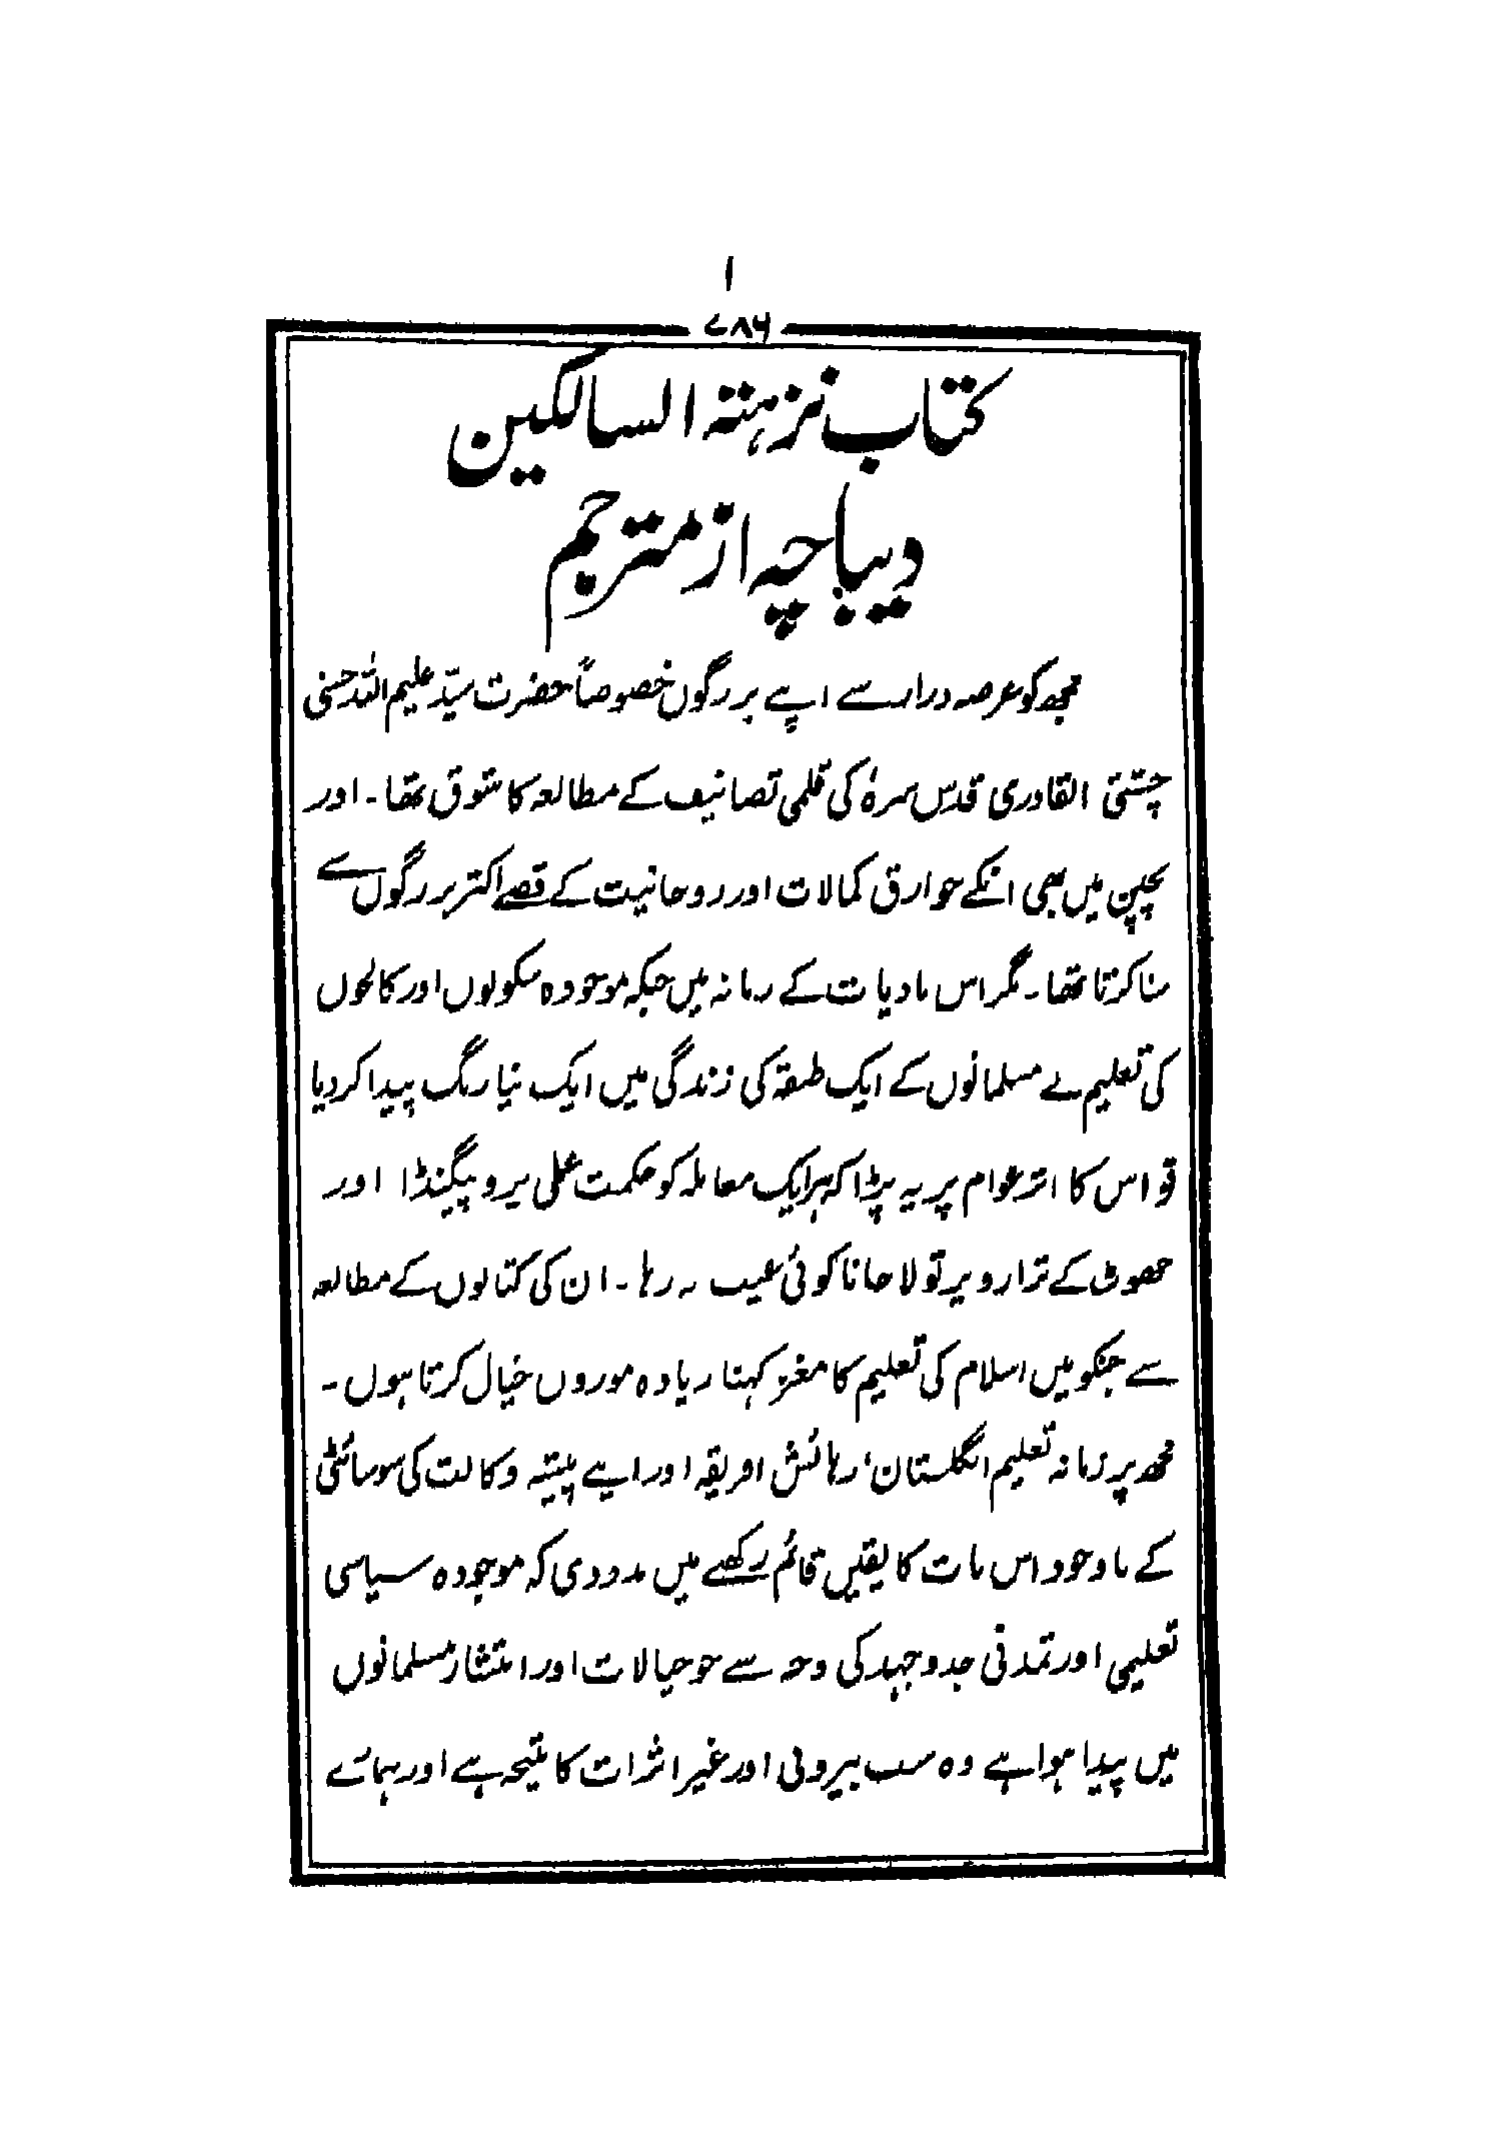 ۱
۷۸۶
کتاب نزہتہ السالکین
دیباچہ از مترجم
مجھ کو عرصہ دراز سے اپنے بزرگوں خصوصاً حضرت سیّد علیم اللہ حسنی
چشتی القادری قدس سرہٗ کی قلمی تصانیف کے مطالعہ کا شوق تھا۔ اور
بچپن میں بھی انکے خوارق کمالات اور روحانیت کے قصے اکثر بزرگوں سے
سنا کرتا تھا۔ مگر اس مادیات کے زمانہ میں جبکہ موجودہ سکولوں اور کالجوں
کی تعلیم نے مسلمانوں کے ایک طبقہ کی زندگی میں ایک نیا رنگ پیدا کر دیا
تو اس کا اثر عوام پر یہ پڑا کہ ہر ایک معاملہ کو حکمت عملی پروپیگنڈا اور
جھوٹ کے ترازو پر تولا جانا کوئی عیب نہ رہا۔ ان کی کتابوں کے مطالعہ
سے جنکو میں اسلام کی تعلیم کا مغز کہنا زیادہ موزوں خیال کرتا ہوں۔
مجھ پر زمانہ تعلیم انگلستان، رہائش افریقہ اور اپنے پیشہ وکالت کی سوسائٹی
کے باوجود اس بات کا یقین قائم رکھنے میں مدد دی کہ موجودہ سیاسی
تعلیمی اور تمدنی جدوجہد کی وجہ سے جو خیالات اور انتشار مسلمانوں
میں پیدا ہوا ہے وہ سب بیرونی اور غیر اثرات کا نتیجہ ہے اور ہمائے